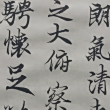 朗氣清
之大俯察
騁懷足